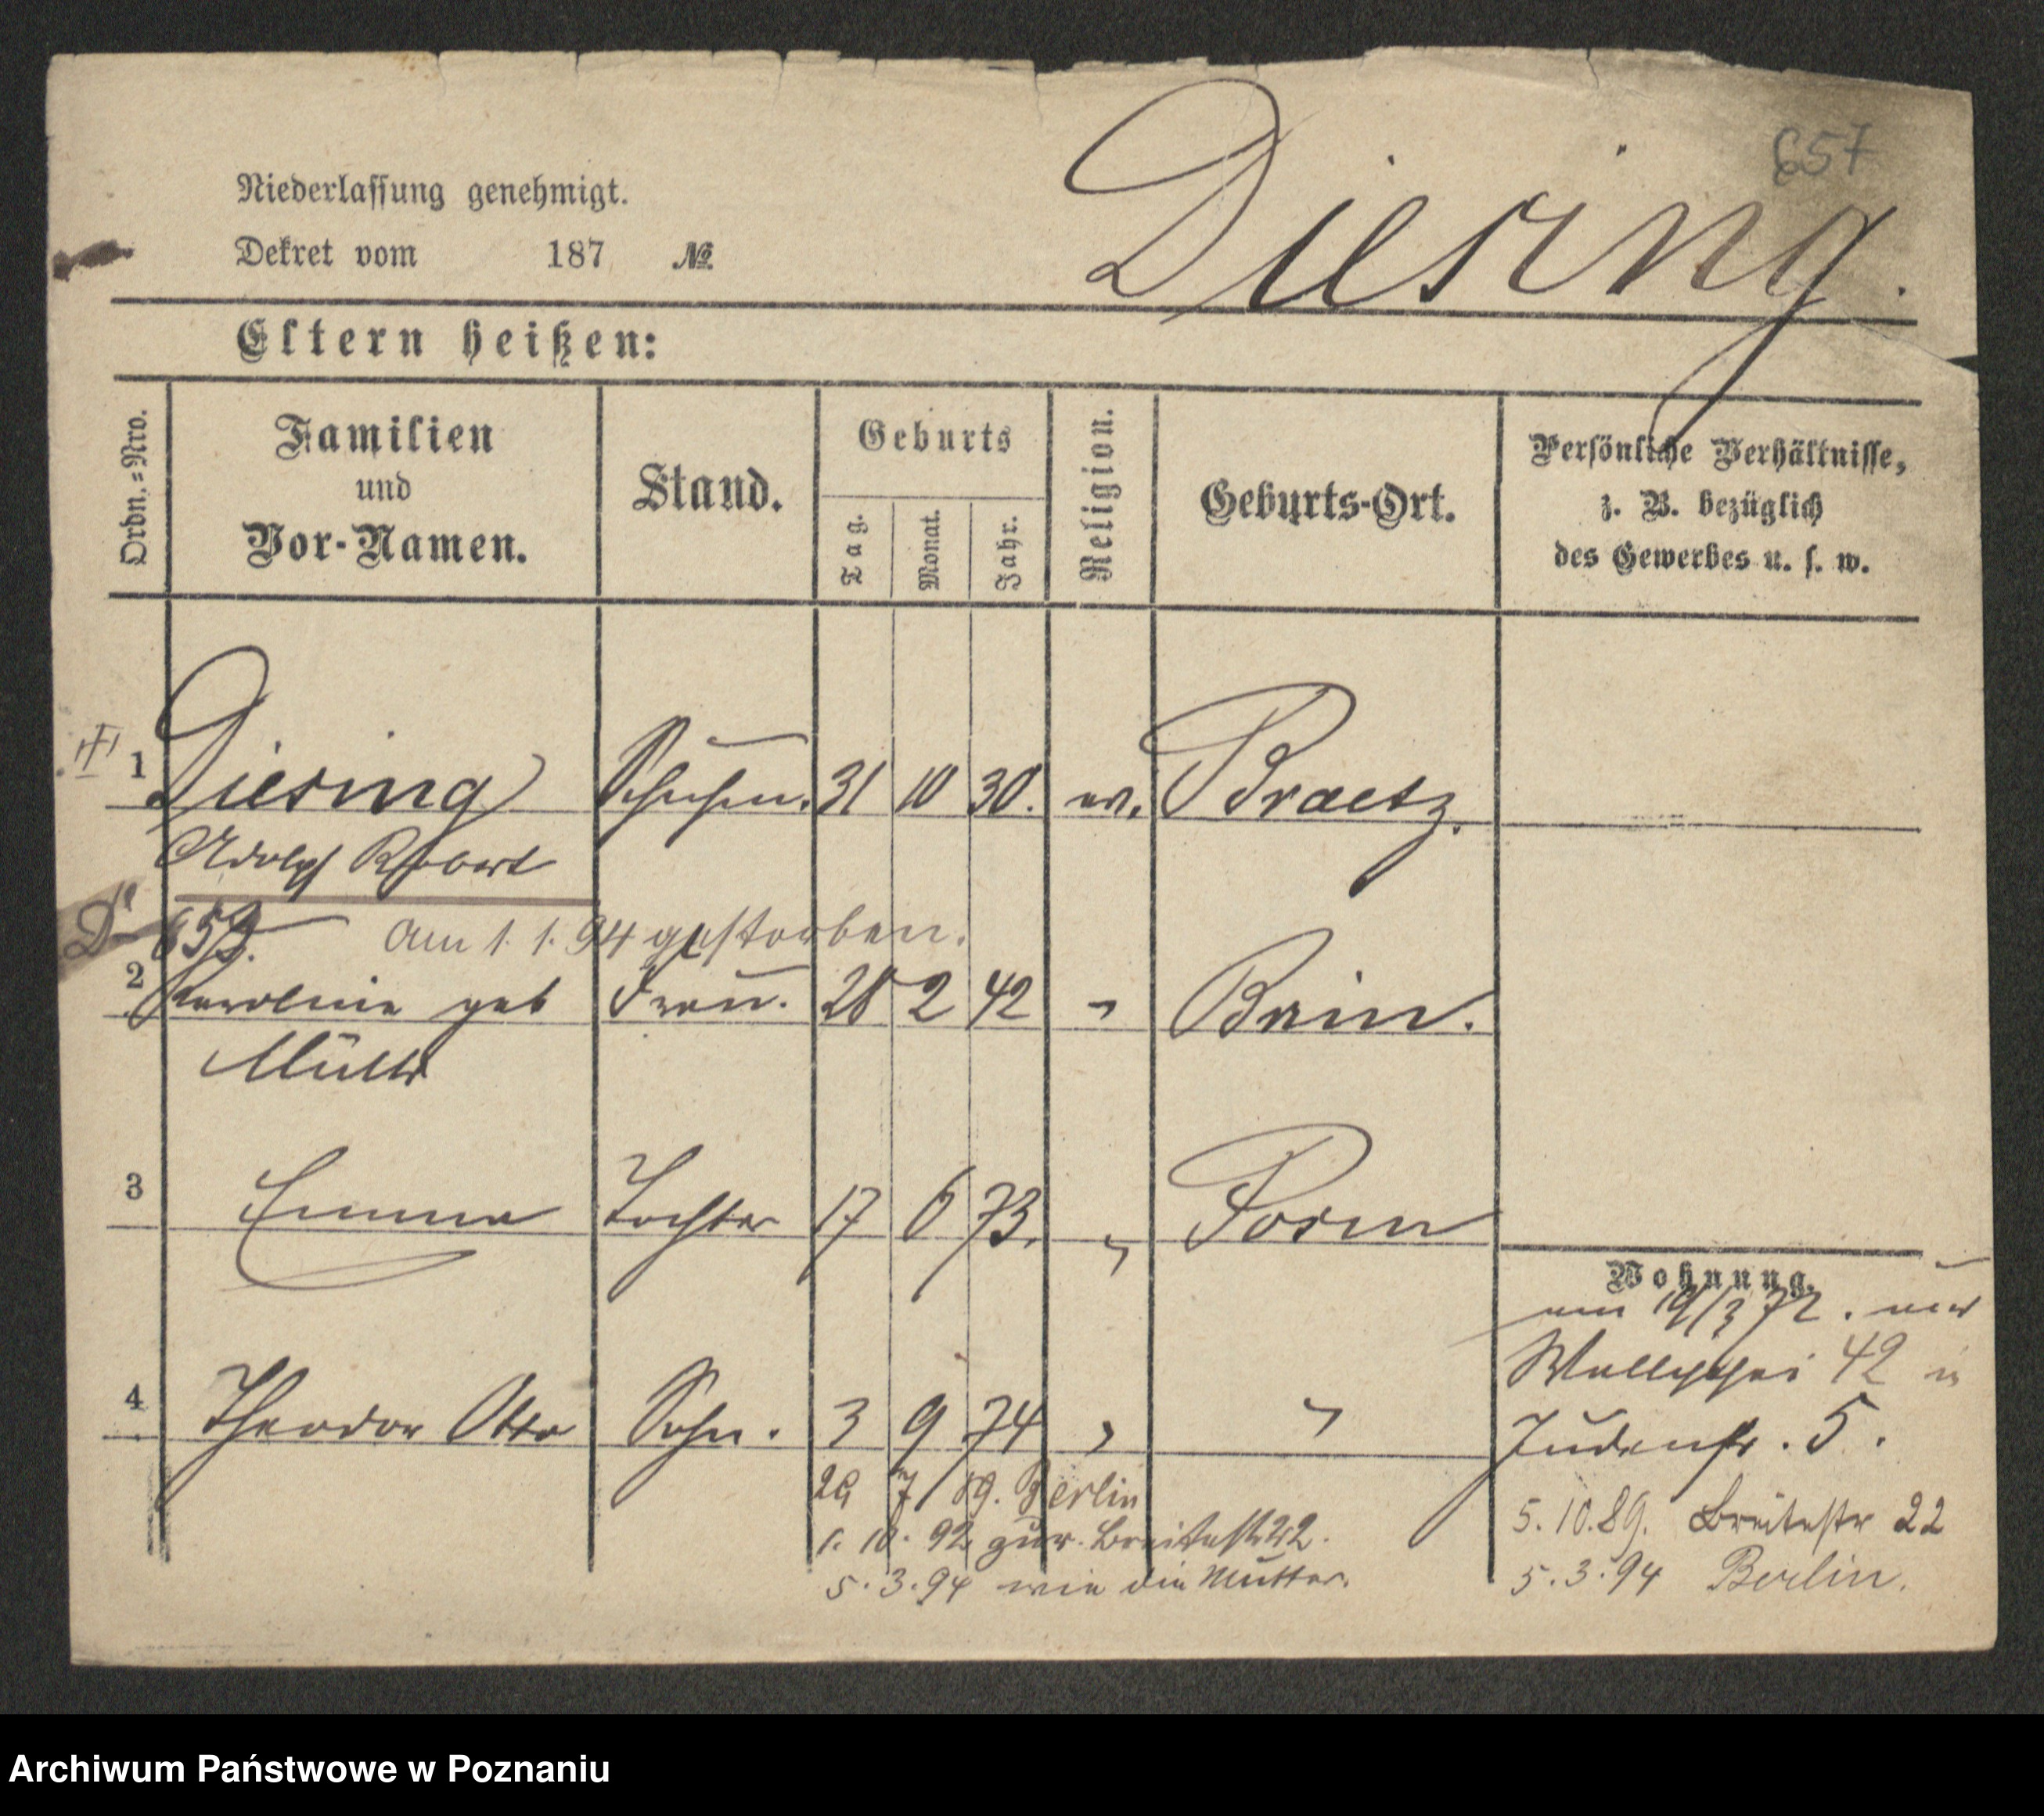 657
Diesing.
Niederlassung genehmigt.
Dekret vom 187 №
Eltern heißen:
Ordn.=Nro.
Familien
und
Vor-Namen.
Stand.
Geburts
Tag.
Monat.
Jahr.
Religion.
Geburts-Ort.
Persönliche Verhältnisse,
z. B. bezüglich
des Gewerbes u. s. w.
1 Diesing 31 10 30. ev. Braetz.
Adolph Robert
am 1. 1. 94 gestorben.
2 Karoline geb Frau. 28 2 42 " Bnin.
Müller
3 Emma Tochter 17 6 73. " Posen
Wohnung.
am 19/3 72. aus
Wallischei 42 in
4 Theodor Otto Sohn. 3 9 74 " "
Judenstr. 5.
29 7 89. Berlin
5.10.89. Breitestr 22
1. 10. 92 zur. Breitestr 22.
5.3.94 Berlin.
5.3.94 wie die Mutter.
Archiwum Państwowe w Poznaniu